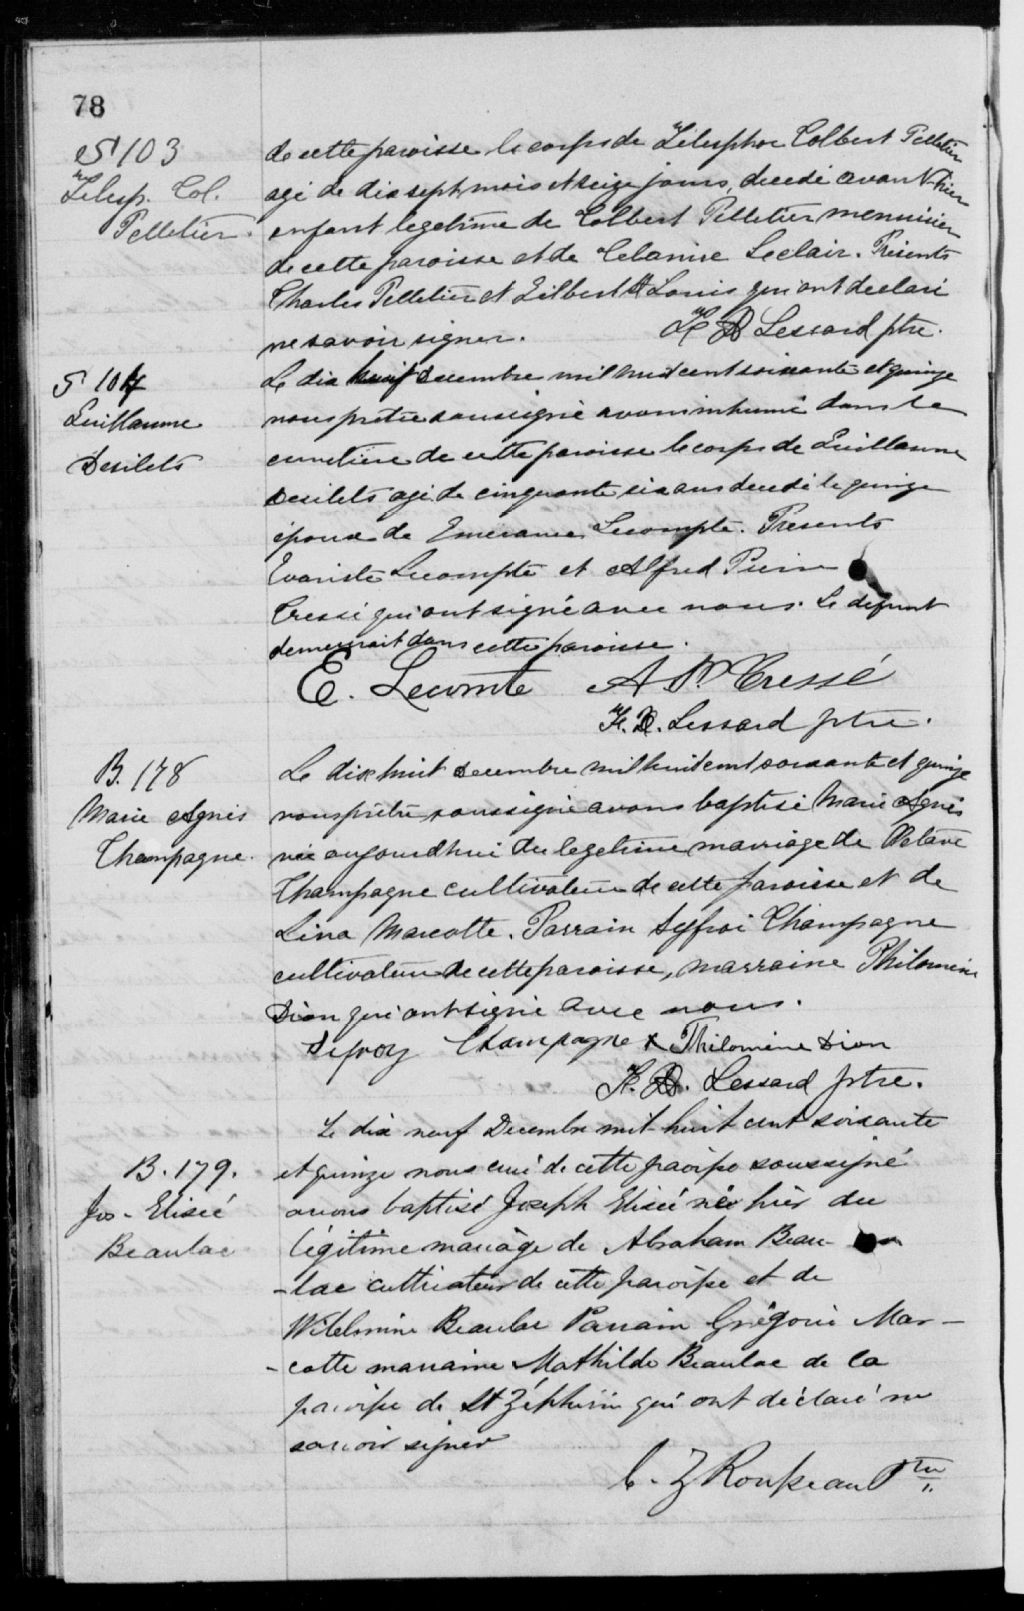 78
S 103
Telesp. Col.
Pelletier.
de cette paroisse le corps de Télesphor Colbert Pelletier
agé de dix sept mois et seize jours, decedé avant-hier
enfant legetime de Colbert Pelletier mennisier
de cette paroisse et de Celanire Leclair. Présents
Charles Pelletier et Gilbert St Louis qui ont declaré
ne savoir signer. Lessard ptre.
S 104
Guillaume
Desilets
Le dix huit Decembre mil huit cent soixante et quinze
nous prêtre soussigné avons inhumé dans le
cimetière de cette paroisse le corps de Guillaume
Desilets agé de cinquante six ans decedé le quinze
époux de Emerance Lecompte. Presents
Evariste Lecompte et Alfred Pierre
Cressé qui ont signé avec nous. Le defunt
demeurait dans cette paroisse.
E. Lecomte A P. Cressé
Lessard ptre.
B. 178
Marie Agnès
Champagne.
Le dix huit Decembre mil huit cent soixante et quinze
nous prêtre soussigné avons baptisé Marie Agnès
née aujourdhui du legetime marriage de Octave
Champagne cultivateur de cette paroisse et de
Lina Marcotte. Parrain Syfroi Champagne
cultivateur de cette paroisse, marraine Philomène
Dion qui ont signé avec nous.
Sifroy Champagne x Philomène Dion
Lessard ptre.
B. 179.
Jos-Elisée
Beaulac
Le dix neuf Decembre mil-huit cent soixante
et quinze nous curé de cette paroisse soussigné
avons baptisé Joseph Elisée né hier du
légitime mariage de Abraham Beau-
-lac cultivateur de cette paroisse et de
Wilelmine Beaulac Parrain Grégoire Mar-
-cotte marraine Mathilde Beaulac de la
paroisse de St Zéphirin qui ont déclaré ne
savoir signer
C. Z Rousseau Ptre